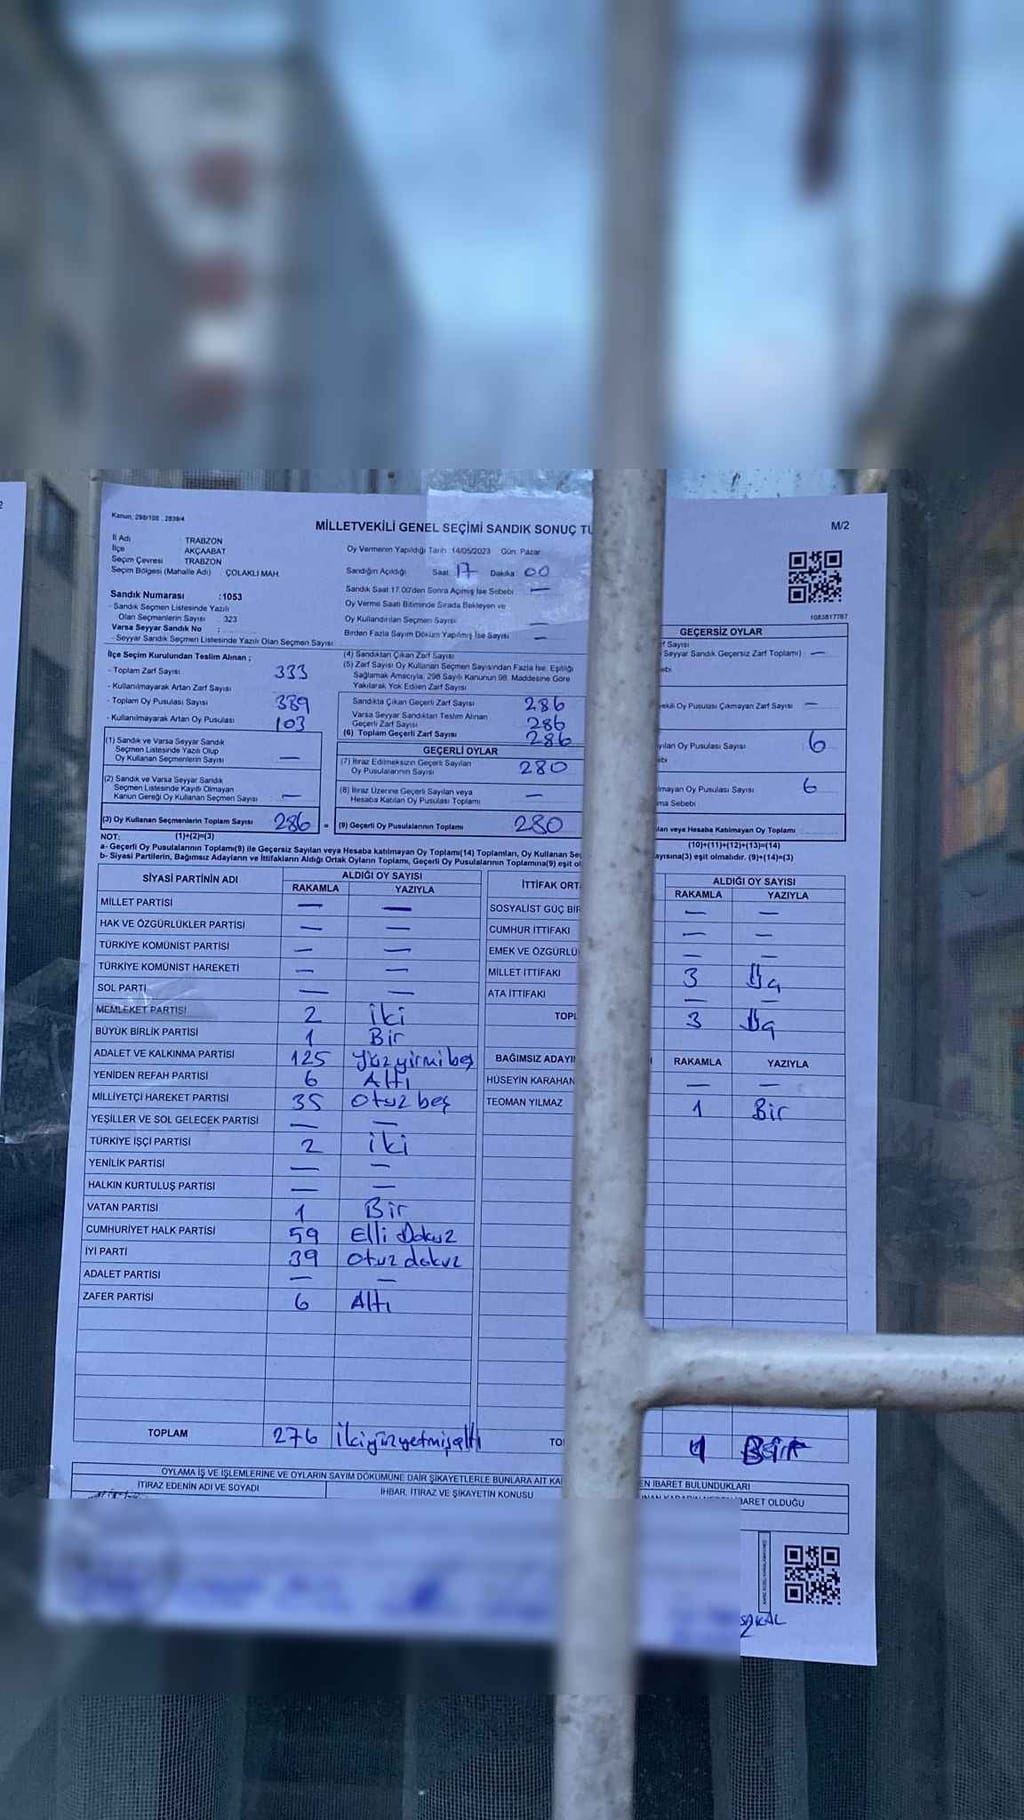 2
Kanun, 298/108 , 2839/4
MİLLETVEKİLİ GENEL SEÇİMİ SANDIK SONUÇ TU
M/2
İl Adı TRABZON
İlçe AKÇAABAT
Seçim Çevresi TRABZON
Seçim Bölgesi (Mahalle Adı) ÇOLAKLI MAH.
Sandık Numarası :1053
- Sandık Seçmen Listesinde Yazılı
Olan Seçmenlerin Sayısı 323
Varsa Seyyar Sandık No :
- Seyyar Sandık Seçmen Listesinde Yazılı Olan Seçmen Sayısı
Oy Vermenin Yapıldığı Tarih: 14/05/2023 Gün: Pazar
Sandığın Açıldığı Saat: 17 Dakika: 00
Sandık Saat 17.00'den Sonra Açılmış İse Sebebi : —
Oy Verme Saati Bitiminde Sırada Bekleyen ve
Oy Kullandırılan Seçmen Sayısı : —
Birden Fazla Sayım Döküm Yapılmış İse Sayısı : —
1083817767
İlçe Seçim Kurulundan Teslim Alınan ;
- Toplam Zarf Sayısı 333
- Kullanılmayarak Artan Zarf Sayısı
- Toplam Oy Pusulası Sayısı 389
- Kullanılmayarak Artan Oy Pusulası 103
(1) Sandık ve Varsa Seyyar Sandık
Seçmen Listesinde Yazılı Olup
Oy Kullanan Seçmenlerin Sayısı —
(2) Sandık ve Varsa Seyyar Sandık
Seçmen Listesinde Kayıtlı Olmayan
Kanun Gereği Oy Kullanan Seçmen Sayısı —
(3) Oy Kullanan Seçmenlerin Toplam Sayısı 286 =
(4) Sandıktan Çıkan Zarf Sayısı
(5) Zarf Sayısı Oy Kullanan Seçmen Sayısından Fazla İse, Eşitliği
Sağlamak Amacıyla, 298 Sayılı Kanunun 98. Maddesine Göre
Yakılarak Yok Edilen Zarf Sayısı
Sandıkta Çıkan Geçerli Zarf Sayısı 286
Varsa Seyyar Sandıktan Teslim Alınan
Geçerli Zarf Sayısı 286
(6) Toplam Geçerli Zarf Sayısı 286
GEÇERLİ OYLAR
(7) İtiraz Edilmeksizin Geçerli Sayılan
Oy Pusulalarının Sayısı 280
(8) İtiraz Üzerine Geçerli Sayılan veya
Hesaba Katılan Oy Pusulası Toplamı —
(9) Geçerli Oy Pusulalarının Toplamı 280
GEÇERSİZ OYLAR
Sayısı
Seyyar Sandık Geçersiz Zarf Toplamı) —
Oy Pusulası Çıkmayan Zarf Sayısı —
Oy Pusulası Sayısı 6
Oy Pusulası Sayısı 6
Sebebi
veya Hesaba Katılmayan Oy Toplamı
(10)+(11)+(12)+(13)=(14)
NOT: (1)+(2)=(3)
a- Geçerli Oy Pusulalarının Toplamı(9) ile Geçersiz Sayılan veya Hesaba katılmayan Oy Toplamı(14) Toplamları, Oy Kullanan Se
sayısına(3) eşit olmalıdır. (9)+(14)=(3)
b- Siyasi Partilerin, Bağımsız Adayların ve İttifakların Aldığı Ortak Oyların Toplamı, Geçerli Oy Pusulalarının Toplamına(9) eşit ol
SİYASİ PARTİNİN ADI ALDIĞI OY SAYISI
RAKAMLA YAZIYLA
MİLLET PARTİSİ — —
HAK VE ÖZGÜRLÜKLER PARTİSİ — —
TÜRKİYE KOMÜNİST PARTİSİ — —
TÜRKİYE KOMÜNİST HAREKETİ — —
SOL PARTİ — —
MEMLEKET PARTİSİ 2 iki
BÜYÜK BİRLİK PARTİSİ 1 Bir
ADALET VE KALKINMA PARTİSİ 125 Yüzyirmi beş
YENİDEN REFAH PARTİSİ 6 Altı
MİLLİYETÇİ HAREKET PARTİSİ 35 Otuz beş
YEŞİLLER VE SOL GELECEK PARTİSİ — —
TÜRKİYE İŞÇİ PARTİSİ 2 iki
YENİLİK PARTİSİ — —
HALKIN KURTULUŞ PARTİSİ — —
VATAN PARTİSİ 1 Bir
CUMHURİYET HALK PARTİSİ 59 Elli Dokuz
İYİ PARTİ 39 Otuz dokuz
ADALET PARTİSİ — —
ZAFER PARTİSİ 6 Altı
TOPLAM 276 İkiyüzyetmişaltı
İTTİFAK ORT ALDIĞI OY SAYISI
RAKAMLA YAZIYLA
SOSYALİST GÜÇ BİR — —
CUMHUR İTTİFAKI — —
EMEK VE ÖZGÜRLÜ — —
MİLLET İTTİFAKI 3 Üç
ATA İTTİFAKI — —
TOPL 3 Üç
BAĞIMSIZ ADAYI RAKAMLA YAZIYLA
HÜSEYİN KARAHAN — —
TEOMAN YILMAZ 1 Bir
TO 1 Bir
OYLAMA İŞ VE İŞLEMLERİNE VE OYLARIN SAYIM DÖKÜMÜNE DAİR ŞİKAYETLERLE BUNLARA AİT KA
EN İBARET BULUNDUKLARI
İTİRAZ EDENİN ADI VE SOYADI
İHBAR, İTİRAZ VE ŞİKAYETİN KONUSU
İBARET OLDUĞU